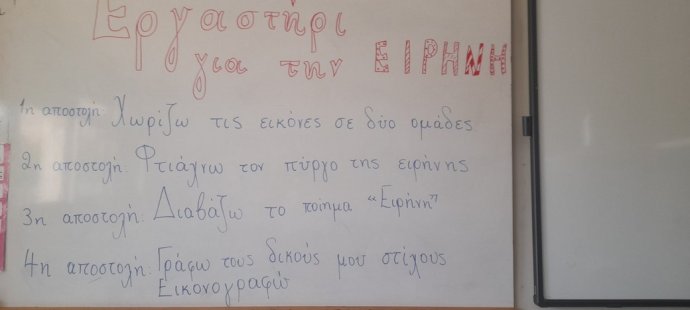 Εργαστήρι
για την ΕΙΡΗΝΗ
1η αποστολή: Χωρίζω τις εικόνες σε δύο ομάδες
2η αποστολή: Φτιάχνω τον πύργο της ειρήνης
3η αποστολή: Διαβάζω το ποίημα "Ειρήνη"
4η αποστολή: Γράφω τους δικούς μου στίχους
Εικονογραφώ